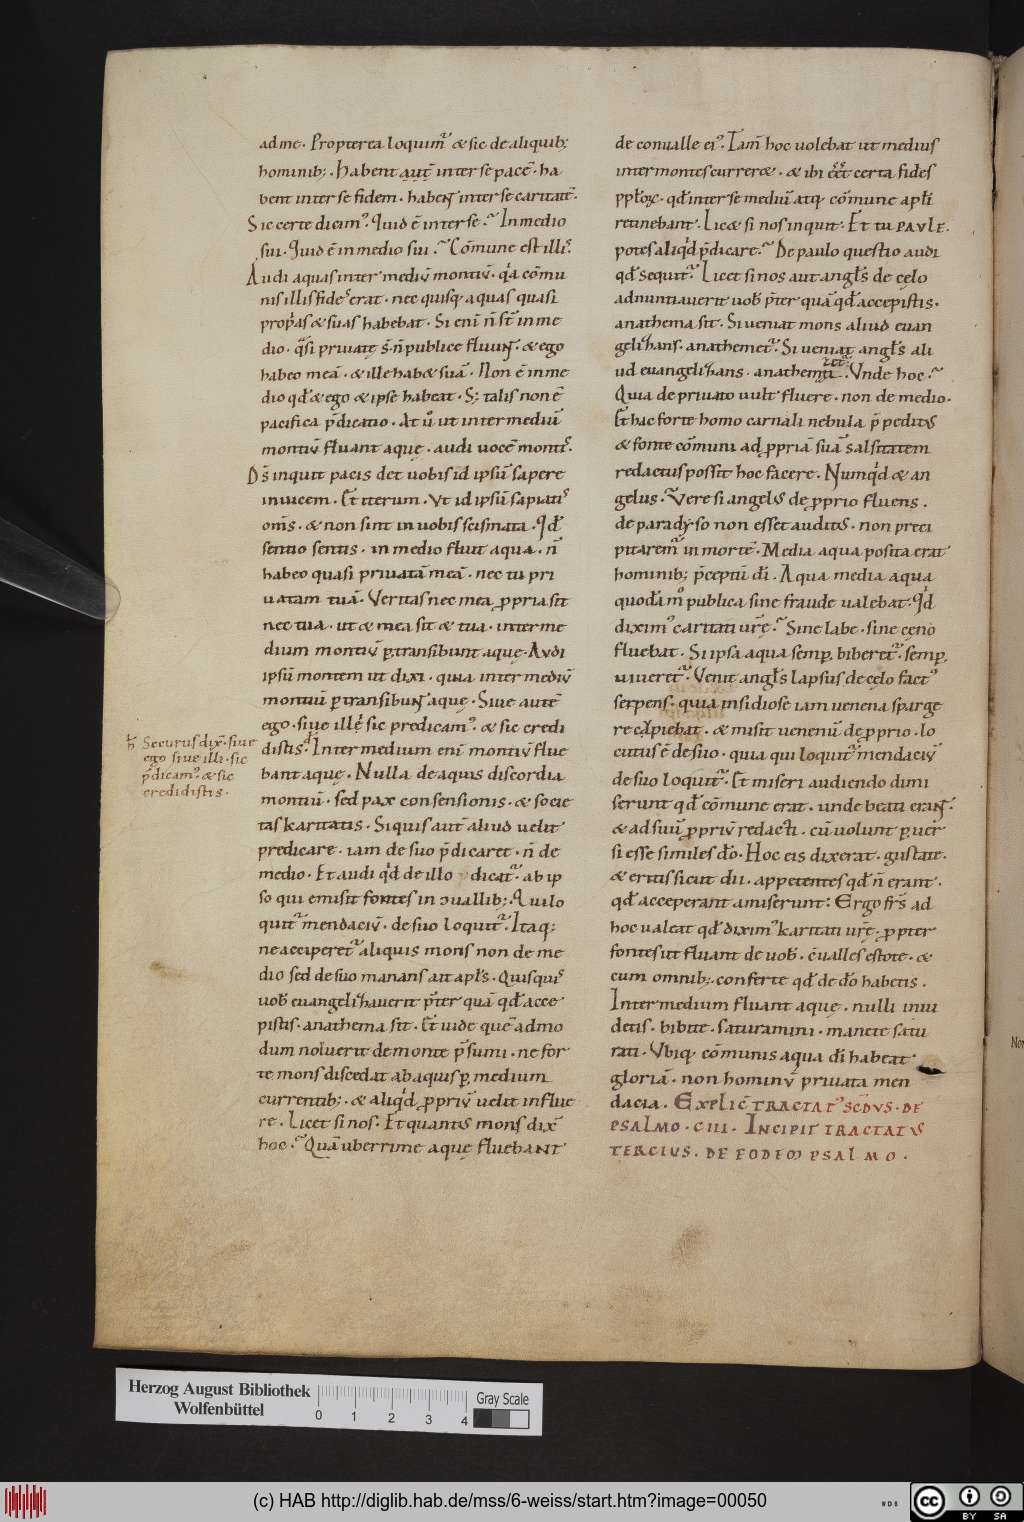 ad me. Propterea loquim᷒ & sic de aliquib;
hominib;. Habent aut̄ inter se pacē. ha
bent inter se fidem. habent inter se caritatē.
Sic certe dicam᷒. Quid ē inter se? In medio
sui. Quid ē in medio sui? Cōmune est illis.
Audi aquas inter mediū montiū. qͥa cōmu
nis illis fides erat. nec quisq; aquas quasi
propͥas & suas habebat. Si eni n̄ st̄ in me
dio. qͣsi priuatę s; n̄ publice fluunt. & ego
habeo meā. & ille hab& suā. Non ē in me
dio qd̄ & ego & ipse habeat. S; talis non ē
pacifica p̄dicatio. At ů ut inter mediū
montiū fluant aquę. audi uocē montis.
Ds̄ inquit pacis det uobis id ipsū sapere
inuicem. Et iterum. Vt id ipsū sapiatis
om̄s. & non sint in uobis scismata. Qd̄
sentio sentis. in medio fluit aqua. n̄
habeo quasi priuatā meā. nec tu pri
uatam tuā. Veritas nec mea ꝓpria sit
nec tua. ut & mea sit & tua. inter me
dium montiū ꝑtransibunt aquę. Audi
ipsū montem ut dixi. quia inter mediū
montiū ꝑtransibunt aquę. Siue autē
ego. siue illę sic predicam᷒. & sic credi
distis. Inter medium enī montiū flue
bant aquę. Nulla de aquis discordia
montiū. sed pax consensionis. & socie
tas karitatis. Siquis aut̄ aliud uelit
predicare. iam de suo p̄dicaret. n̄ de
medio. Et audi qͥd de illo dicat᷒. ab ip
so qui emisit fontes in ɔuallib;. Qui lo
quit᷒ mendaciū. de suo loquit᷒. Itaq;
ne acciperet᷒ aliquis mons non de me
dio sed de suo manans ait apl̄s. Quisquis
uob̄ euangelizauerit p̄ter quā qd̄ acce
pistis. anathema sit. Et uide quē admo
dum noluerit de monte p̄sumi. ne for
te mons discedat ab aquis ꝑ medium
currentib;. & aliqͥd ꝓpriū uelit influe
re. Licet si nos. Et quantus mons dix̄
hoc? Quā uberrime aquę fluebant
h̄ Securus dix̄. siue
ego siue illi. sic
p̄dicam᷒. & sic
credidistis.
de conualle ei᷒. Tam̄ hoc uolebat ut medius
inter montes curreret. & ibi eēt certa fides
ppl̄oꝝ. qd̄ inter se mediū atq; cōmune apl̄i
retinebant. Lic& si nos inquit. Et tu PAVLE.
potes aliqͥd p̄dicare? De paulo questio audi
qd̄ sequit᷒. Licet si nos aut angl̄s de cęlo
adnuntiauerit uob̄ p̄ter quā qd̄ accepistis.
anathema sit. Si ueniat mons aliud euan
gelizans. anathemet᷒. Si ueniat angl̄s ali
ud euangelizans. anathemet᷒. Vnde hoc?
Quia de priuato uult fluere. non de medio.
Et hac forte homo carnali nebula p̄peditus
& fonte cōmuni ad ꝓpriā suā salsitatem
redactus possit hoc facere. Numqͥd & an
gelus? Vere si angelus de ꝓprio fluens.
de paradyso non esset auditus. non preci
pitarem᷒ in mortē. Media aqua posita erat
hominib; p̄ceptū dī. Aqua media aqua
quodām᷒ publica sine fraude ualebat. Qͥd
dixim᷒ caritati ur̄ę? Sine labe. sine cęno
fluebat. Si ipsa aqua semꝑ biberet᷒. semꝑ
uiueret᷒. Venit angl̄s lapsus de cęlo fact᷒
serpens. quia insidiose iam uenena sparge
re cupiebat. & misit uenenū de ꝓprio. lo
cutus ē de suo. quia qui loquit᷒ mendaciū
de suo loquit᷒. Et miseri audiendo dimi
serunt qd̄ cōmune erat. unde beati erant.
& ad suū ꝓpriū redacti. cū uolunt ꝑuer
si esse similes dō. Hoc eis dixerat. gustate.
& eritis sicut dii. appetentes qd̄ n̄ erant.
qd̄ acceperant amiserunt: Ergo frs̄ ad
hoc ualeat qd̄ dixim᷒ karitati ur̄ę. ꝓpter
fontes ut fluant de uob̄. c̄ualles estote. &
cum omnib;. conferte qd̄ de dō habetis.
Inter medium fluant aquę. nulli inui
detis. bibite. saturamini. manete satu
rati. Vbiq; cōmunis aqua dī habeat
gloriā. non hominū priuata men
dacia. EXPLIC̄ TRACTAT᷒ SCD̄VS. DE
PSALMO. CIII. INCIPIT TRACTATVS
TERCIVS. DE EODEM PSALMO.
Herzog August Bibliothek
Wolfenbüttel
0 1 2 3 4
Gray Scale
(c) HAB http://diglib.hab.de/mss/6-weiss/start.htm?image=00050
WDB
cc BY SA